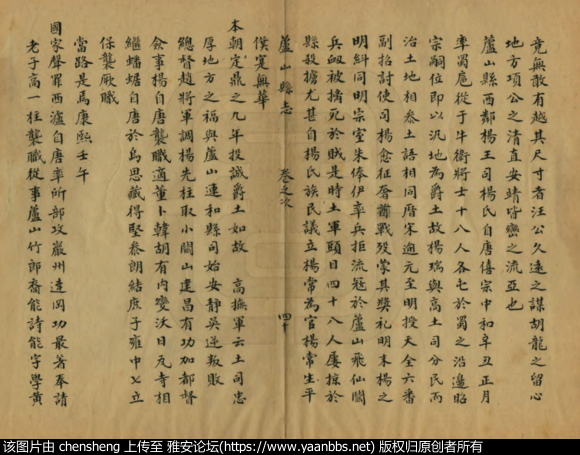 竟無敢有越其尺寸者汪公久遠之謀胡龍之留心
地方項公之清直安靖皆蠻之流亞也
蘆山縣西鄰楊王司楊氏自唐僖宗中和辛丑正月
率蜀扈從于牛衝將士十八人各屯於蜀之沿邊昭
宗嗣位即以汎地為爵土故楊瑞與高土司分民而
治土地相叅土語相同曆宋迤元至明授天全六番
副招討使司楊愈征層蕭戰歿蒙其奬礼明末楊之
明糾同明宗室朱俸伊率兵拒流寇於蘆山飛仙關
兵衂被擒死於賊是時土軍頭目四十八人屢掠於
縣殺擄尤甚自楊氏族民議立楊常為官楊常生平
蘆山縣志 卷之次 四十
僕寔無華
本朝定鼎之九年投誠爵土如故 高撫軍云土司忠
厚地方之福與蘆山連和縣司始安靜吳逆叛敗
總督趙將軍調楊先柱取小關山建昌有功加都督
僉事楊自唐襲職適董卜韓胡有內變沃日瓦寺相
繼蟠踞自唐於烏思藏得堅叅朗結庶子雍中七立
保襲厥職
當路是焉康熙壬午
國家聲罪西瀘自唐率所部攻巖州達岡功最著奉請
老子高一柱襲職從事蘆山竹郎裔能詩能字學黃
该图片由 chensheng 上传至 雅安论坛(https://www.yaanbbs.net) 版权归原创者所有